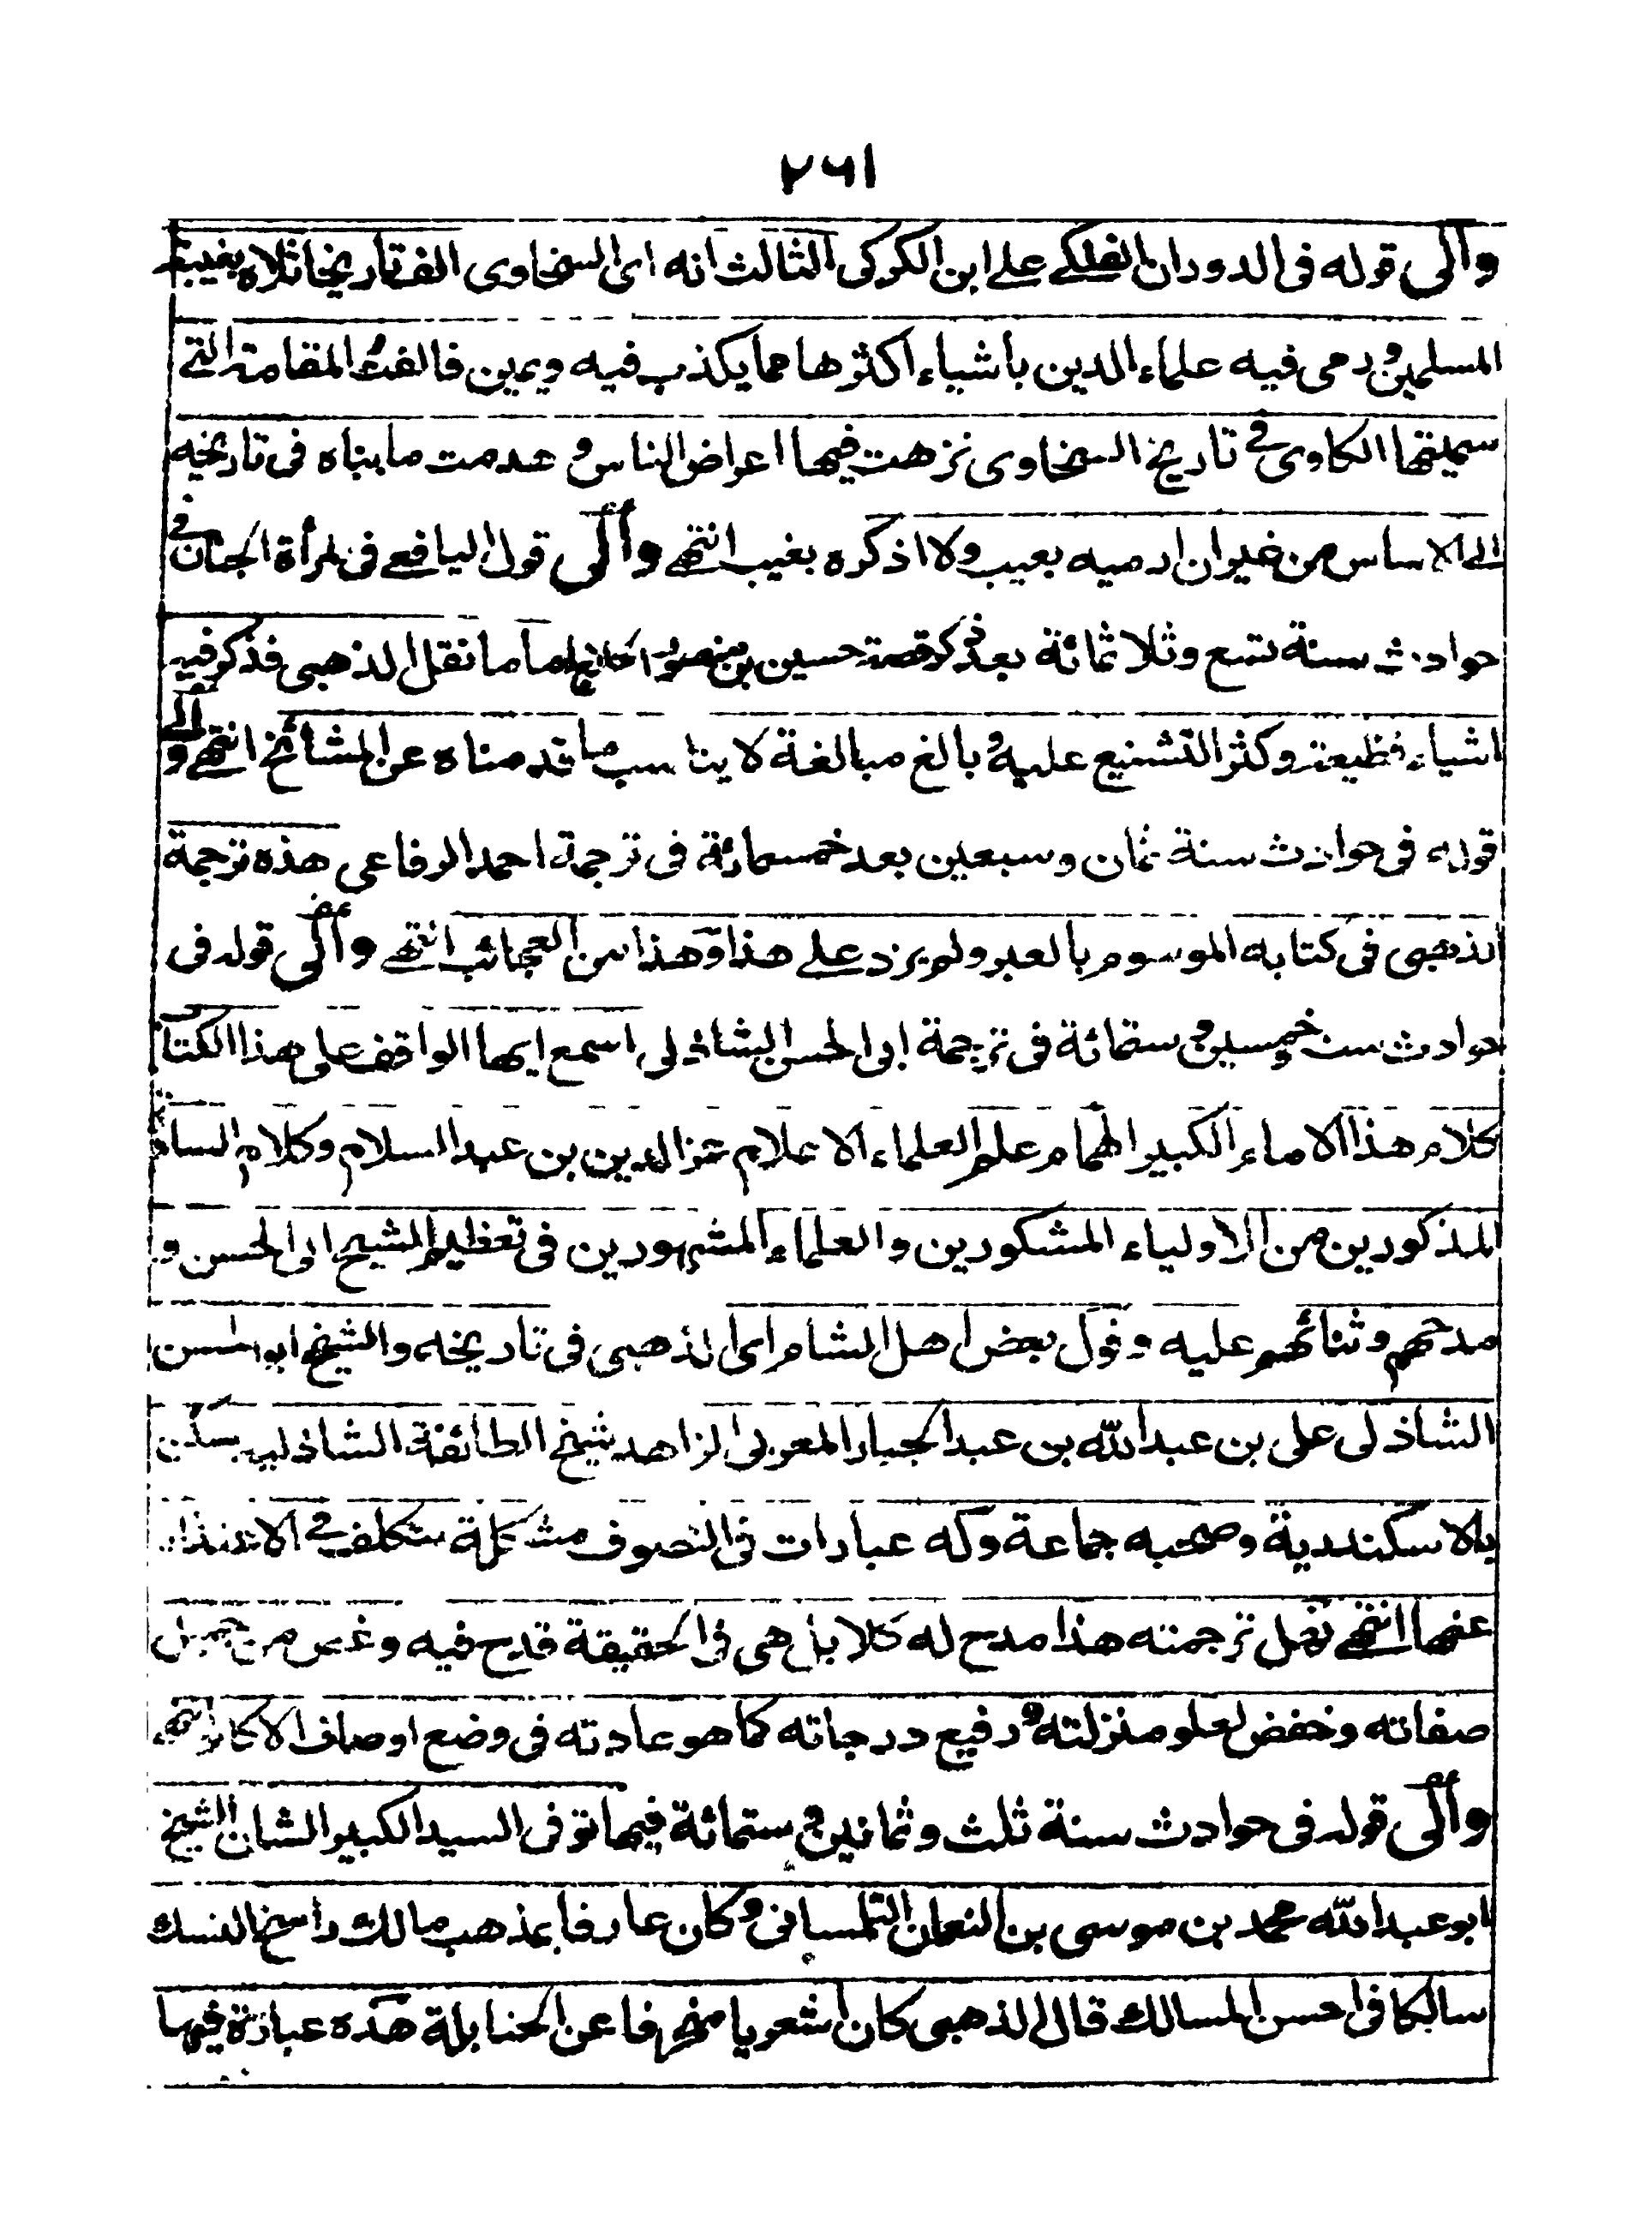 ٢٦١
والى قوله فى الدوران الفلكے علے ابن الكركى الثالث انه اى السخاوى الف تاريخا ثلاه بغيبة
المسلمين ورمى فيه علماء الدين باشياء اكثرها مما يكذب فيه ويمين فالفت المقامة التے
سميتها الكاوى فے تاريخ السخاوى نزهت فيها اعراض الناس و هدمت ما بناه فى تاريخه
الے الاساس من غير ان ارميه بعيب ولا اذكره بغيب انتهے والى قول اليافعے فى مرأة الجنان فے
حوادث سنة تسع وثلاثمائة بعد ذكر قصة حسين بن منصور الحلاج اما ما نقل الذهبى فذكر فيه
اشياء فظيعة وكثر التشنيع عليه وبالغ مبالغة لا يناسب ما قدمناه عن المشائخ انتهے والے
قوله فى حوادث سنة ثمان وسبعين بعد خمسمائة فى ترجمة احمد الرفاعى هذه ترجمة
الذهبى فى كتابه الموسوم بالعبر ولم يزد علے هذا وهذا من العجائب انتهے والى قوله فى
حوادث ست وخمسين و ستمائة فى ترجمة ابى الحسن الشاذلى اسمع ايها الواقف على هذا الكتاب
كلام هذا الامام الكبير الهمام علم العلماء الاعلام عز الدين بن عبد السلام وكلام السادة
المذكورين من الاولياء المشكورين والعلماء المشهورين فى تعظيم الشيخ ابى الحسن و
مدحهم وثنائهم عليه وقول بعض اهل الشام اى الذهبى فى تاريخه والشيخ ابو الحسن
الشاذلى على بن عبد الله بن عبد الجبار المغربى الزاهد شيخ الطائفة الشاذلية سكن
بالاسكندرية وصحبه جماعة وله عبارات فى التصوف مشكلة تتكلف فے الاعتذار
عنها انتهے فهل ترجمته هذا مدح له كلا بل هى فى الحقيقة قدح فيه وغض من جميل
صفاته وخفض لعلو منزلته و رفيع درجاته كما هو عادته فى وضع اوصاف الاكابر انتهے
والى قوله فى حوادث سنة ثلث وثمانين و ستمائة فيها توفى السيد الكبير الشان الشيخ
ابو عبد الله محمد بن موسى بن النعمان التلمسانى و كان عارفا بمذهب مالك راسخ النسك
سالكا فى احسن المسالك قال الذهبى كان اشعريا منحرفا عن الحنابلة هذه عبارة فيها